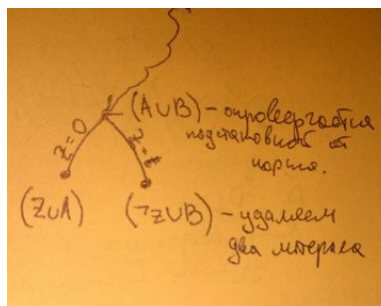 (A∪B) - опровергается
подстановкой от
корня.
z=0
z=1
(Z∪A)
(¬Z∪B) - удаляем
два литерала